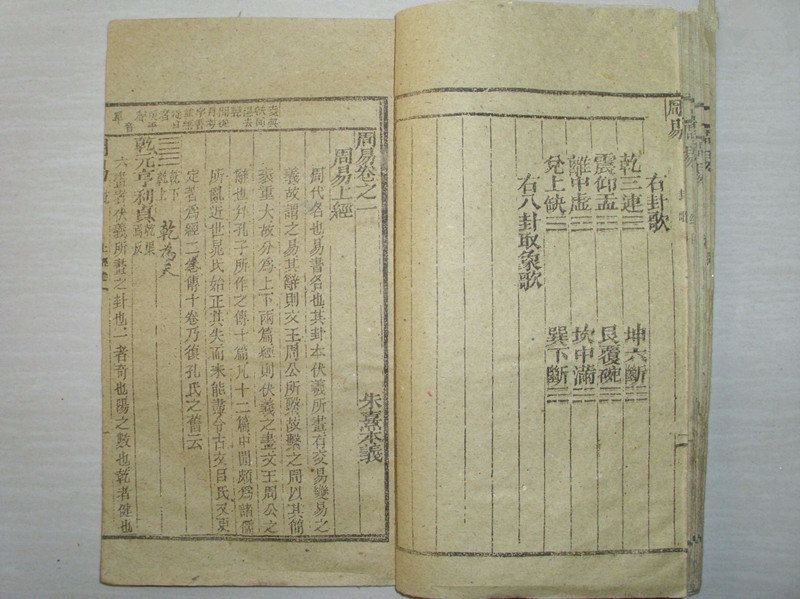 周易
右卦歌
乾三連☰ 坤六斷☷
震仰盂☳ 艮覆碗☶
離中虛☲ 坎中滿☵
兌上缺☱ 巽下斷☴
右八卦取象歌
周易卷之一
周易上經 朱熹本義
周代名也易書名也其卦本伏羲所畫有交易變易之
義故謂之易其辭則文王周公所繫故繫之周以其簡
袠重大故分爲上下兩篇經則伏羲之畫文王周公之
辭也并孔子所作之傳十篇凡十二篇中間頗爲諸儒
所亂近世晁氏始正其失而未能盡合古文呂氏又更
定著爲經二卷傳十卷乃復孔氏之舊云
乾下
乾上
乾爲天
乾元亨利貞
六畫者伏羲所畫之卦也一者奇也陽之數也乾者健也